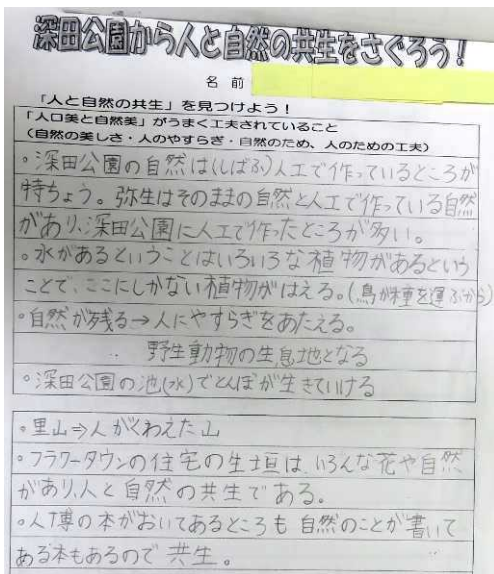 深田公園から人と自然の共生をさぐろう!
名前
「人と自然の共生」を見つけよう!
「人口美と自然美」がうまく工夫されていること
(自然の美しさ・人のやすらぎ・自然のため、人のための工夫)
○深田公園の自然は(しばふ)人工で作っているところが
特ちょう。弥生はそのままの自然と人工で作っている自然
があり、深田公園に人工で作ったところが多い。
○水があるということはいろいろな植物があるという
ことで、ここにしかない植物がはえる。(鳥が種を運ぶから)
○自然が残る→人にやすらぎをあたえる。
野生動物の生息地となる
○深田公園の池(水)でとんぼが生きていける
○里山⇒人がくわえた山
○フラワータウンの住宅の生垣は、いろんな花や自然
があり、人と自然の共生である。
○人博の本がおいてあるところも自然のことが書いて
ある本もあるので共生。